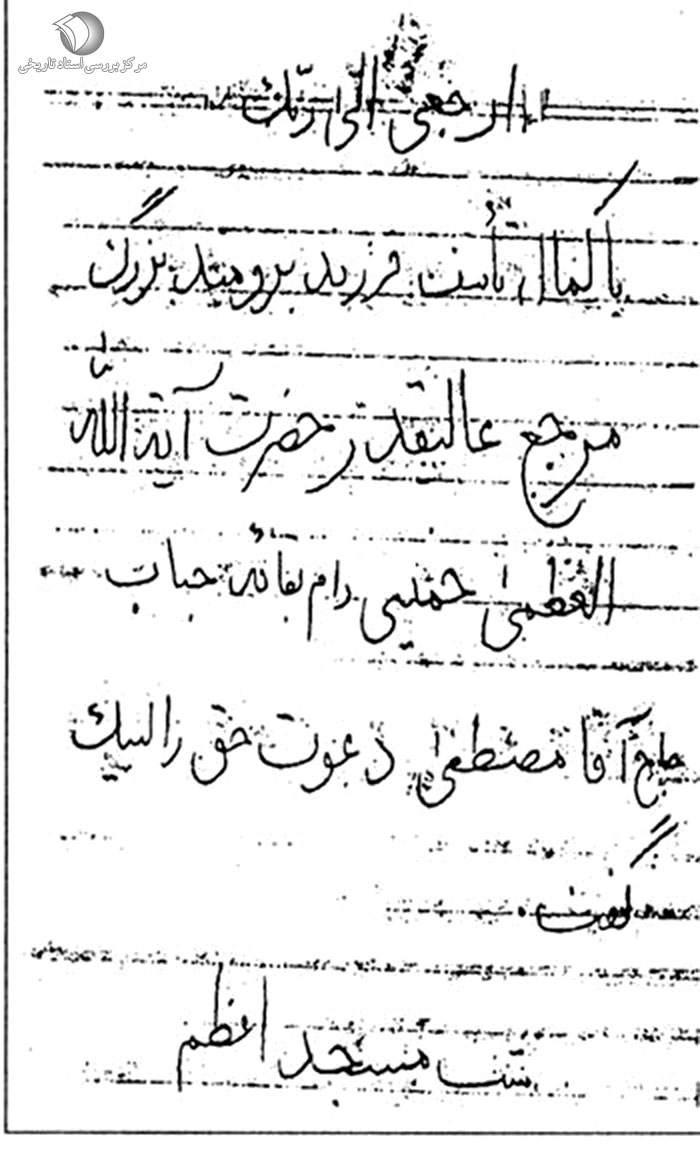 مرکز بررسی اسناد تاریخی
ارجعی الی ربّک
با کمال تأسف فرزند برومند بزرگ
مرجع عالیقدر حضرت آیة اللّه
العظمی خمینی دام بقائه جناب
حاج آقا مصطفی دعوت حق را لبیک
گفت
مسجد اعظم